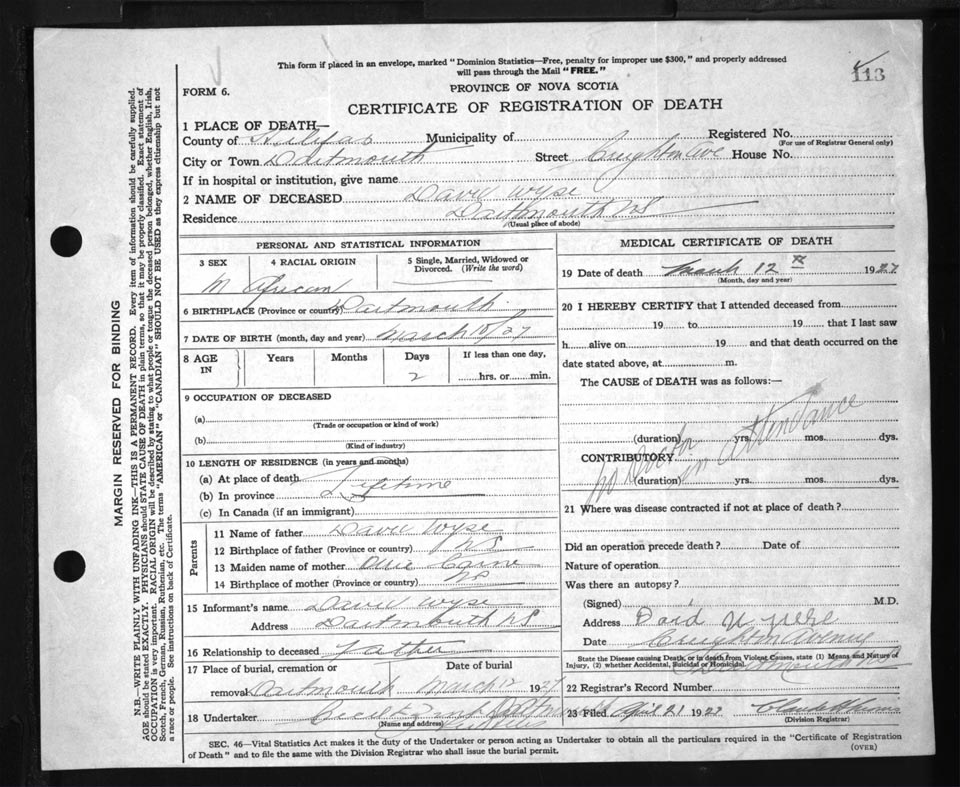 This form if placed in an envelope, marked "Dominion Statistics—Free, penalty for improper use $300," and properly addressed
will pass through the Mail "FREE."
113
FORM 6.
PROVINCE OF NOVA SCOTIA
CERTIFICATE OF REGISTRATION OF DEATH
1 PLACE OF DEATH—
County of Halifax Municipality of Registered No.
(For use of Registrar General only)
City or Town Dartmouth Street Creighton Ave House No.
If in hospital or institution, give name
2 NAME OF DECEASED David Wyse
Residence Dartmouth NS
(Usual place of abode)
PERSONAL AND STATISTICAL INFORMATION
3 SEX 4 RACIAL ORIGIN 5 Single, Married, Widowed or Divorced. (Write the word)
M African
6 BIRTHPLACE (Province or country) Dartmouth
7 DATE OF BIRTH (month, day and year) March 10/27
8 AGE IN Years Months Days If less than one day,
2 hrs. or min.
9 OCCUPATION OF DECEASED
(a)
(Trade or occupation or kind of work)
(b)
(Kind of industry)
10 LENGTH OF RESIDENCE (in years and months)
(a) At place of death
(b) In province Lifetime
(c) In Canada (if an immigrant)
Parents
11 Name of father David Wyse
12 Birthplace of father (Province or country) NS
13 Maiden name of mother
14 Birthplace of mother (Province or country) NS
15 Informant's name David Wyse
Address Dartmouth NS
16 Relationship to deceased Father
17 Place of burial, cremation or Date of burial
removal Dartmouth March 12 1927
18 Undertaker
(Name and address)
MEDICAL CERTIFICATE OF DEATH
19 Date of death March 12th 1927
(Month, day and year)
20 I HEREBY CERTIFY that I attended deceased from
19 to 19 that I last saw
h alive on 19 and that death occurred on the
date stated above, at m.
The CAUSE of DEATH was as follows:—
No Doctor in attendance
(duration) yrs. mos. dys.
CONTRIBUTORY
(duration) yrs. mos. dys.
21 Where was disease contracted if not at place of death?
Did an operation precede death? Date of
Nature of operation
Was there an autopsy?
(Signed) M.D.
Address
Date Creighton Avenue
State the Disease causing Death, or in death from Violent Causes, state (1) Means and Nature of
Injury, (2) whether Accidental, Suicidal or Homicidal.
22 Registrar's Record Number
23 Filed April 21 1927
(Division Registrar)
SEC. 46—Vital Statistics Act makes it the duty of the Undertaker or person acting as Undertaker to obtain all the particulars required in the "Certificate of Registration
of Death" and to file the same with the Division Registrar who shall issue the burial permit.
(OVER)
MARGIN RESERVED FOR BINDING
N.B.—WRITE PLAINLY WITH UNFADING INK—THIS IS A PERMANENT RECORD. Every item of information should be carefully supplied.
AGE should be stated EXACTLY. PHYSICIANS should STATE CAUSE OF DEATH in plain terms, so that it may be properly classified. Exact statement of
OCCUPATION is very important. RACIAL ORIGIN will be described by stating to what people or tongue the deceased person belonged, whether English, Irish,
Scotch, French, German, Russian, Ruthenian, etc. The terms "AMERICAN" or "CANADIAN" SHOULD NOT BE USED as they express citizenship but not
a race or people. See instructions on back of Certificate.